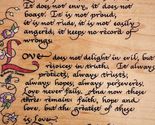 It does not envy, it does not
boast, it is not proud; it
is not rude, it is not easily
angered, it keeps no record of
wrongs.
Love does not delight in evil, but
rejoices in truth. It always
protects, always trusts;
always hopes, always perseveres.
Love never fails. And now these
three remain: faith, hope and
love, but the greatest of these
is love